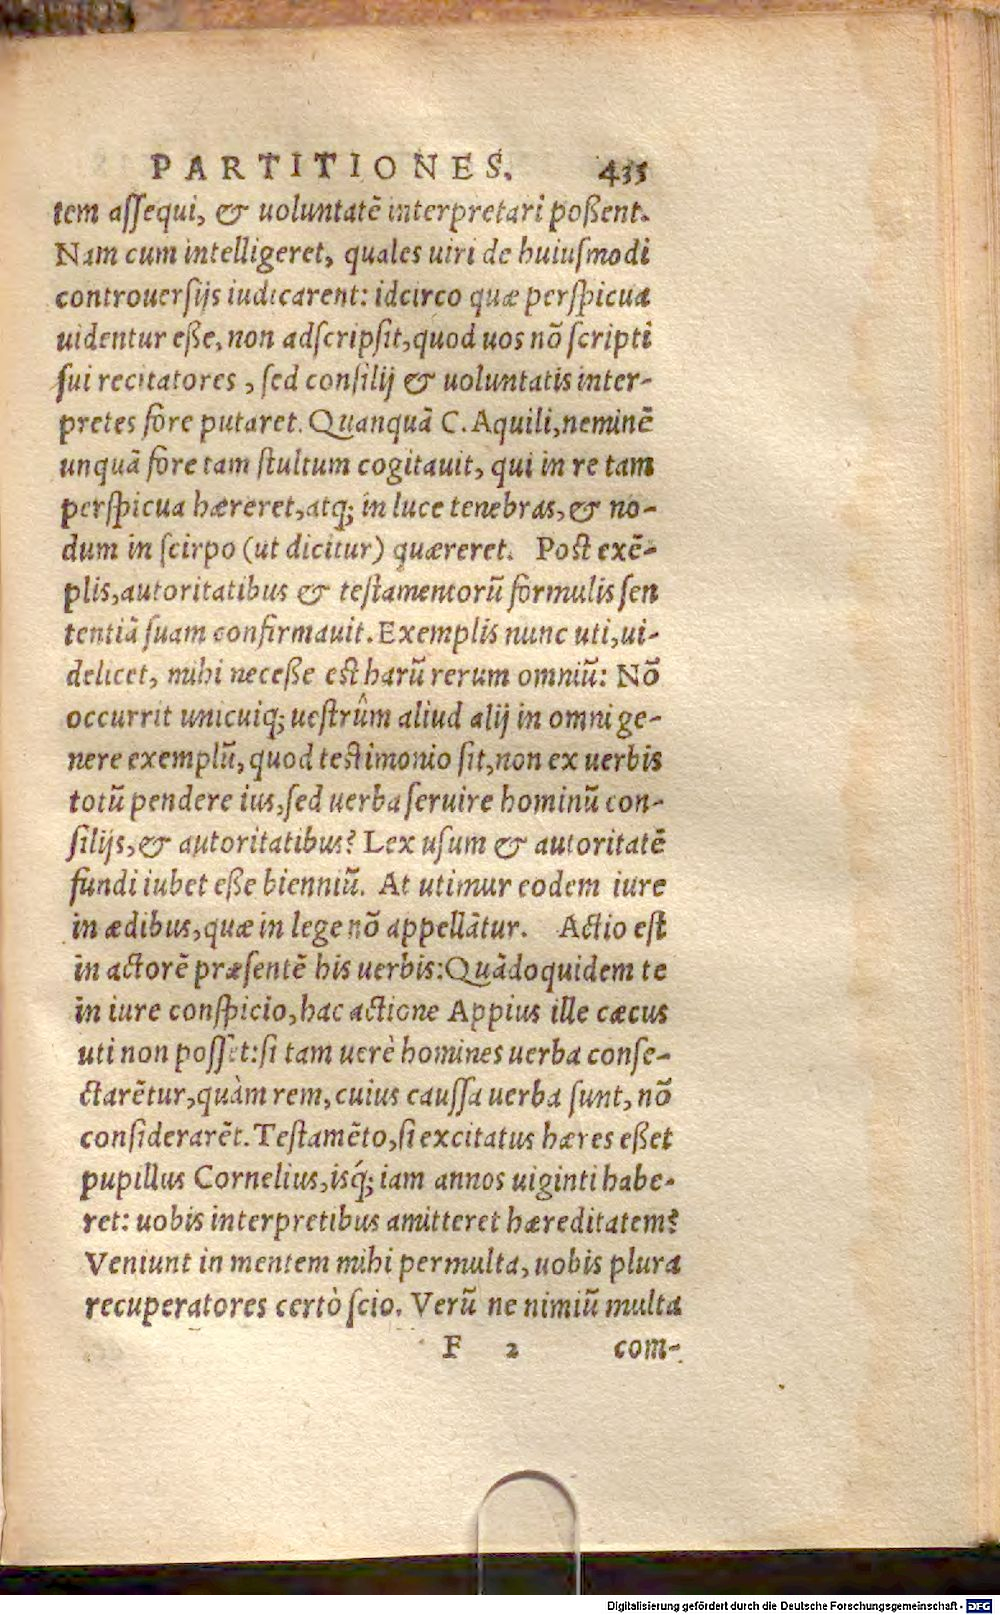 PARTITIONES. 435
tem aſſequi, & uoluntatē interpretari poßent.
Nam cum intelligeret, quales uiri de huiuſmodi
controuerſijs iudicarent: idcirco quæ perſpicua
uidentur eße, non adſcripſit, quod uos nō ſcripti
ſui recitatores, ſed conſilij & uoluntatis inter-
pretes fore putaret. Quanquā C. Aquili, neminē
unquā fore tam ſtultum cogitauit, qui in re tam
perſpicua hæreret, atq; in luce tenebras, & no-
dum in ſcirpo (ut dicitur) quæreret. Post exē-
plis, autoritatibus & teſtamentorū formulis ſen
tentiā ſuam confirmauit. Exemplis nunc uti, ui-
delicet, mihi neceße est harū rerum omniū: Nō
occurrit unicuiq; ueſtrûm aliud alij in omni ge-
nere exemplū, quod testimonio ſit, non ex uerbis
totū pendere ius, ſed uerba ſeruire hominū con-
ſilijs, & autoritatibus? Lex uſum & autoritatē
fundi iubet eße bienniū. At utimur eodem iure
in ædibus, quæ in lege nō appellātur. Actio eſt
in actorē præſentē his uerbis: Quādoquidem te
in iure conſpicio, hac actione Appius ille cæcus
uti non poſſet: ſi tam uerè homines uerba conſe-
ctarētur, quàm rem, cuius cauſſa uerba ſunt, nō
conſiderarēt. Teſtamēto, ſi excitatus hæres eßet
pupillus Cornelius, isq́; iam annos uiginti habe-
ret: uobis interpretibus amitteret hæreditatem?
Veniunt in mentem mihi permulta, uobis plura
recuperatores certò ſcio. Verū ne nimiū multa
F 2 com-
Digitalisierung gefördert durch die Deutsche Forschungsgemeinschaft - DFG